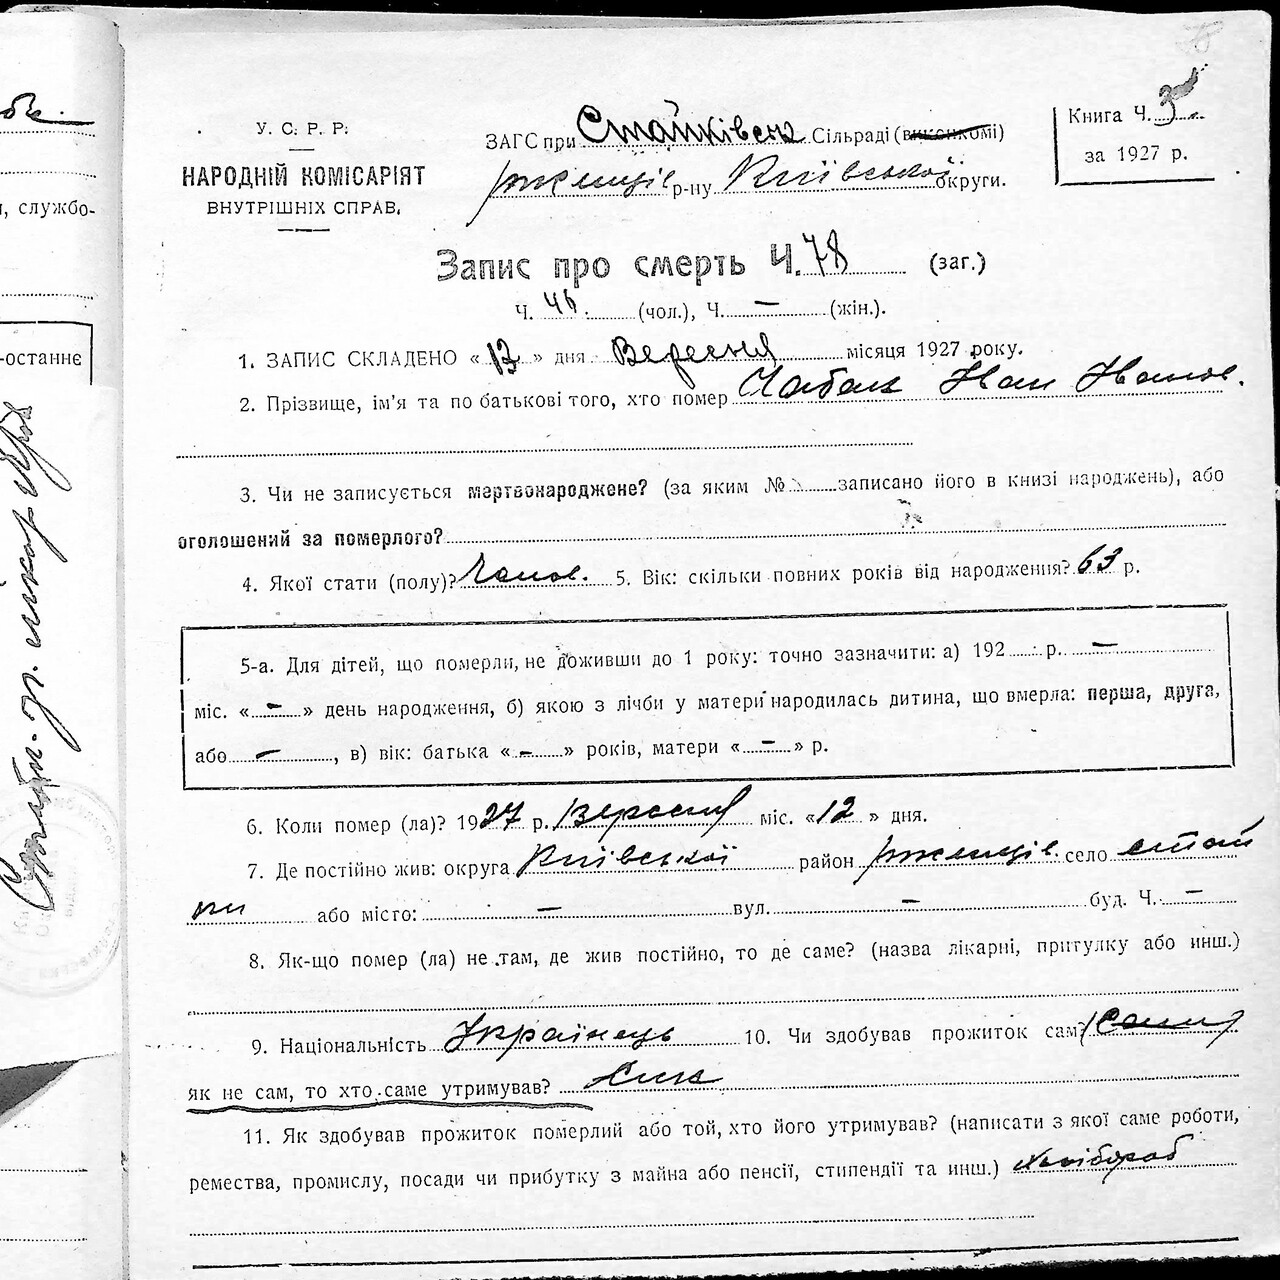 У. С. Р. Р.
НАРОДНІЙ КОМІСАРІЯТ
ВНУТРІШНІХ СПРАВ.
ЗАГС при Стайківськ Сільраді (виконкомі)
Ржищів р-ну Київської округи.
Книга Ч. 3
за 1927 р.
Запис про смерть Ч. 78 (заг.)
Ч. 46 (чол.), Ч. — (жін.).
1. ЗАПИС СКЛАДЕНО « 13 » дня Вересня місяця 1927 року.
2. Прізвище, ім'я та по батькові того, хто помер Чабан Іван Іванов.
3. Чи не записується мертвонароджене? (за яким № записано його в книзі народжень), або
оголошений за померлого?
4. Якої стати (полу)? Чолов. 5. Вік: скільки повних років від народження? 63 р.
5-а. Для дітей, що померли, не доживши до 1 року: точно зазначити: а) 192 р. —
міс. « — » день народження, б) якою з лічби у матери народилась дитина, що вмерла: перша, друга,
або —, в) вік: батька « — » років, матери « — » р.
6. Коли помер (ла)? 1927 р. Вересня міс. «12» дня.
7. Де постійно жив: округа Київської район Ржищів. село Стай
ки або місто: — вул. — буд. Ч. —
8. Як-що помер (ла) не там, де жив постійно, то де саме? (назва лікарні, притулку або инш.)
9. Національність Українець 10. Чи здобував прожиток сам?
як не сам, то хто саме утримував? Син
11. Як здобував прожиток померлий або той, хто його утримував? (написати з якої саме роботи,
ремества, промислу, посади чи прибутку з майна або пенсії, стипендії та инш.) хлібороб
, службо-
-останнє